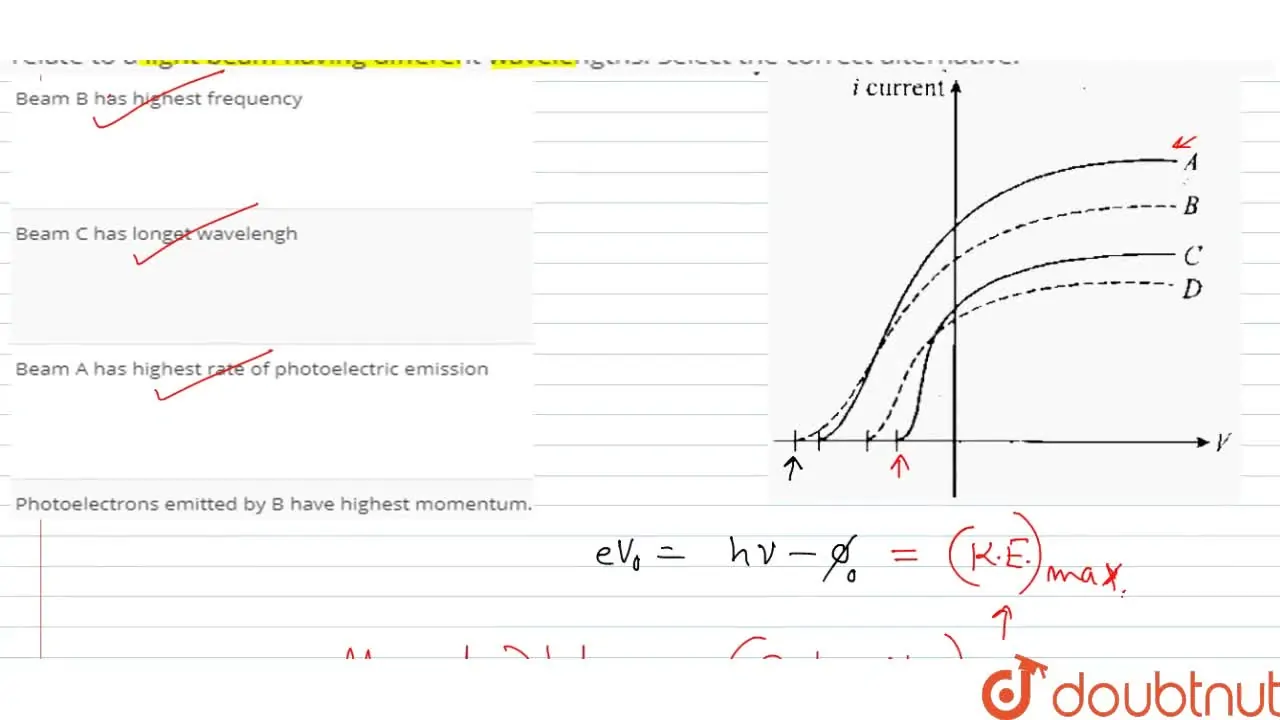 relate to a light beam having different wavelengths. Select the correct alternative.
Beam B has highest frequency
Beam C has longet wavelengh
Beam A has highest rate of photoelectric emission
Photoelectrons emitted by B have highest momentum.
i current
A
B
C
D
V
eV₀ = hν − φ₀ = (K.E.)max.
doubtnut